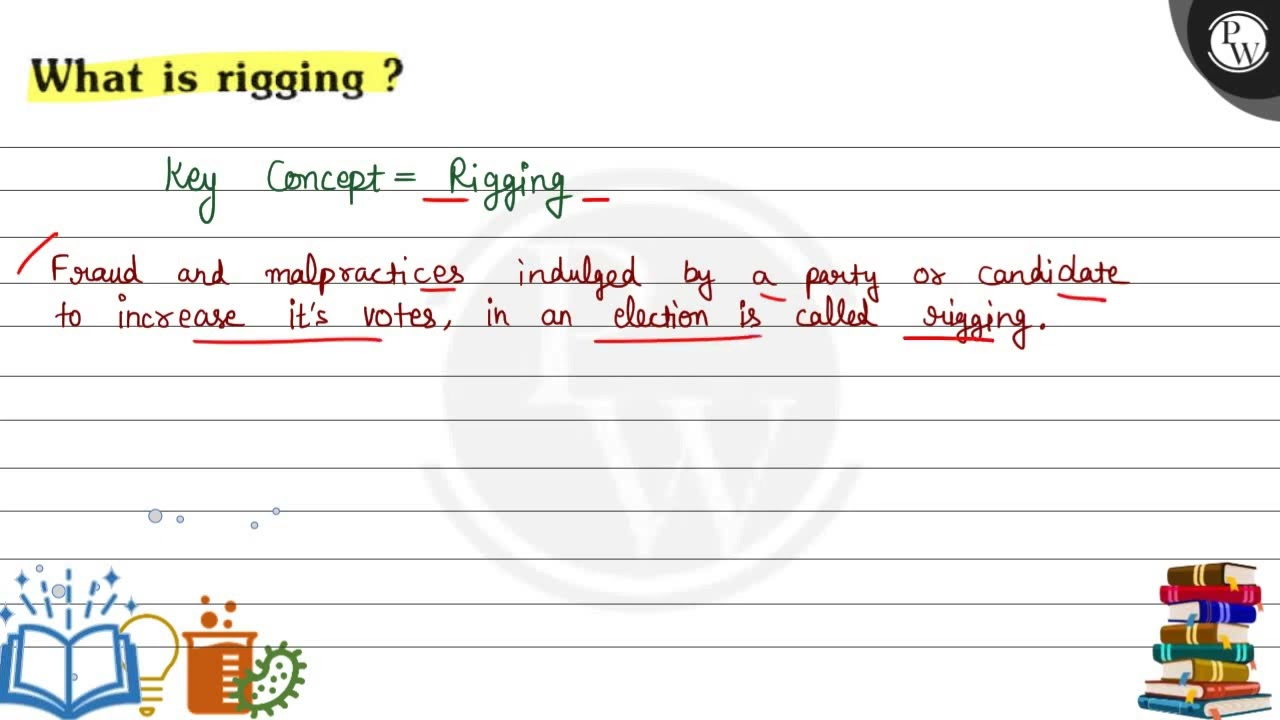 What is rigging ?
PW
Key Concept = Rigging
Fraud and malpractices indulged by a party or candidate
to increase it's votes, in an election is called rigging.
PW